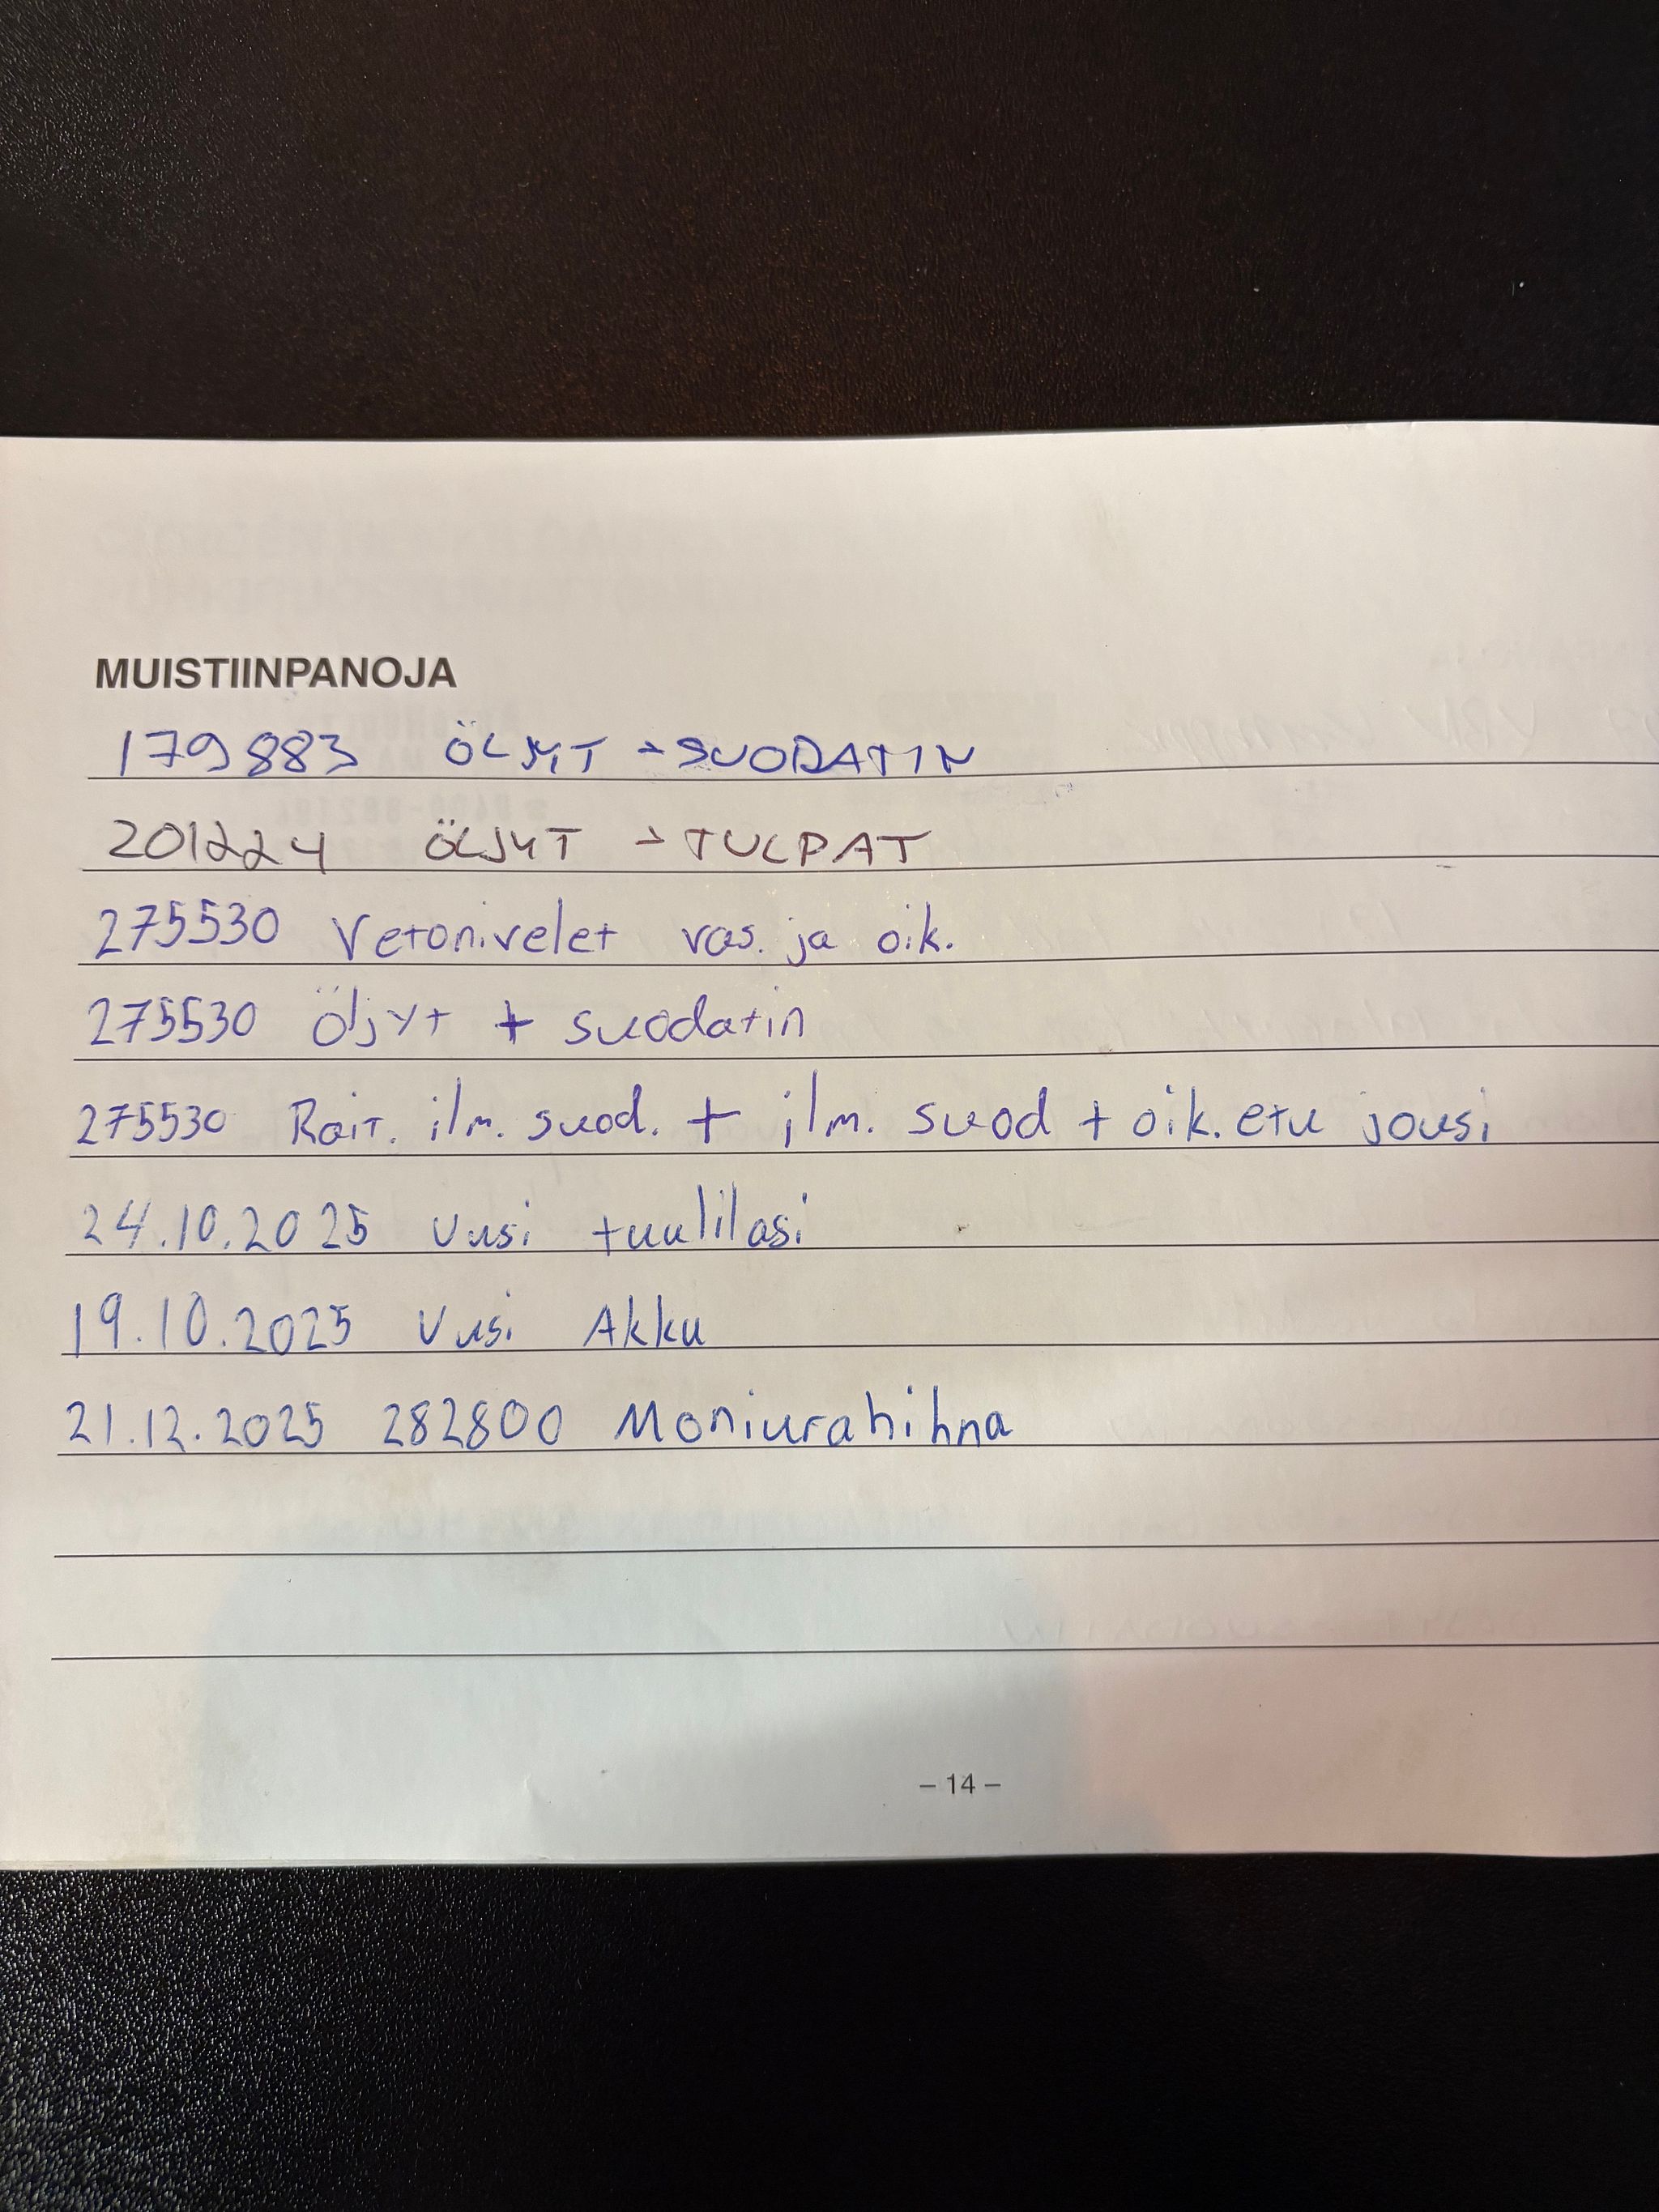 MUISTIINPANOJA
179883 ÖLJYT + SUODATIN
201224 ÖLJYT + TULPAT
275530 Vetonivelet vas. ja oik.
275530 Öljyt + suodatin
275530 Rait. ilm. suod. + ilm. suod + oik. etu jousi
24.10.2025 Uusi tuulilasi
19.10.2025 Uusi Akku
21.12.2025 282800 Moniurahihna
– 14 –